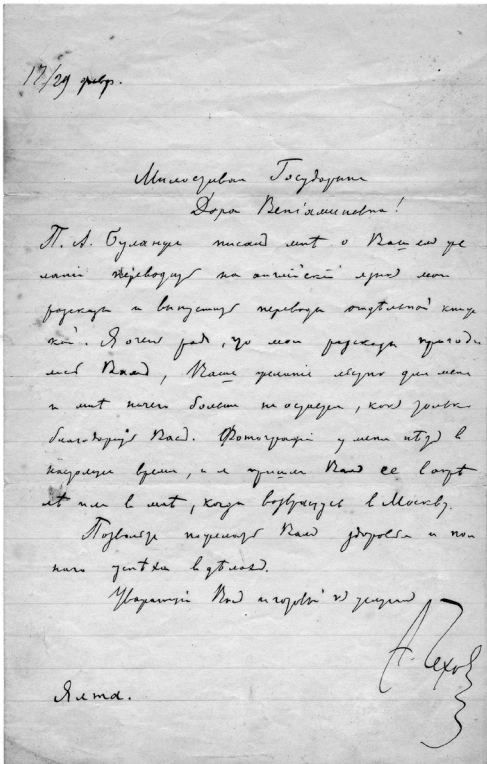 17/29 февр.
Милостивая Государыня
Дора Вениаминовна!
П. А. Буланже писал мне о Вашем же
лании переводить на английский язык мои
рассказы и выпустить переводы отдельной книж
кой. Я очень рад, что мои рассказы пригоди
лись Вам, Ваше желание лестно для меня
и мнѣ ничего больше не остается, как только
благодарить Вас. Фотографий у меня нѣт в
настоящее время, и я пришлю Вам ее в апрѣ
лѣ или в маѣ, когда возвращусь в Москву.
Позвольте пожелать Вам здоровья и пол
ного успѣха в дѣлах.
Уважающий Вас и готовый к услугам
А. Чехов
Ялта.